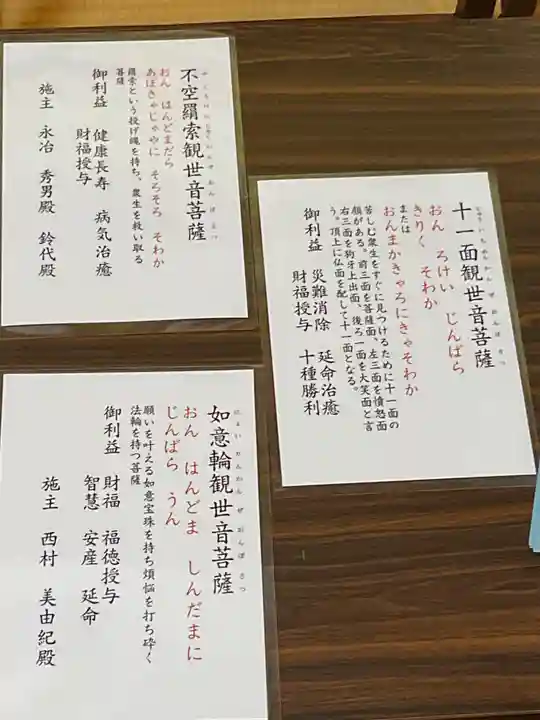 不空羂索観世音菩薩
おん はんどまだら
あぼきゃじゃやに そろそろ そわか
羂索という投げ縄を持ち、衆生を救い取る
菩薩
御利益 健康長寿 病気治癒
財福授与
施主 永冶 秀男殿 鈴代殿
じゅういちめんかんぜおんぼさつ
十一面観世音菩薩
おん ろけい じんばら
きりく そわか
または
おんまかきゃろにきゃそわか
苦しむ衆生をすぐに見つけるために十一面の
顔がある。前三面を菩薩面、左三面を憤怒面
右三面を狗牙上出面、後ろ一面を大笑面と言
う。頂上に仏面を配して十一面となる。
御利益 災難消除 延命治癒
財福授与 十種勝利
にょいりんかんぜおんぼさつ
如意輪観世音菩薩
おん はんどま しんだまに
じんばら うん
願いを叶える如意宝珠を持ち煩悩を打ち砕く
法輪を持つ菩薩
御利益 財福 福徳授与
智慧 安産 延命
施主 西村 美由紀殿